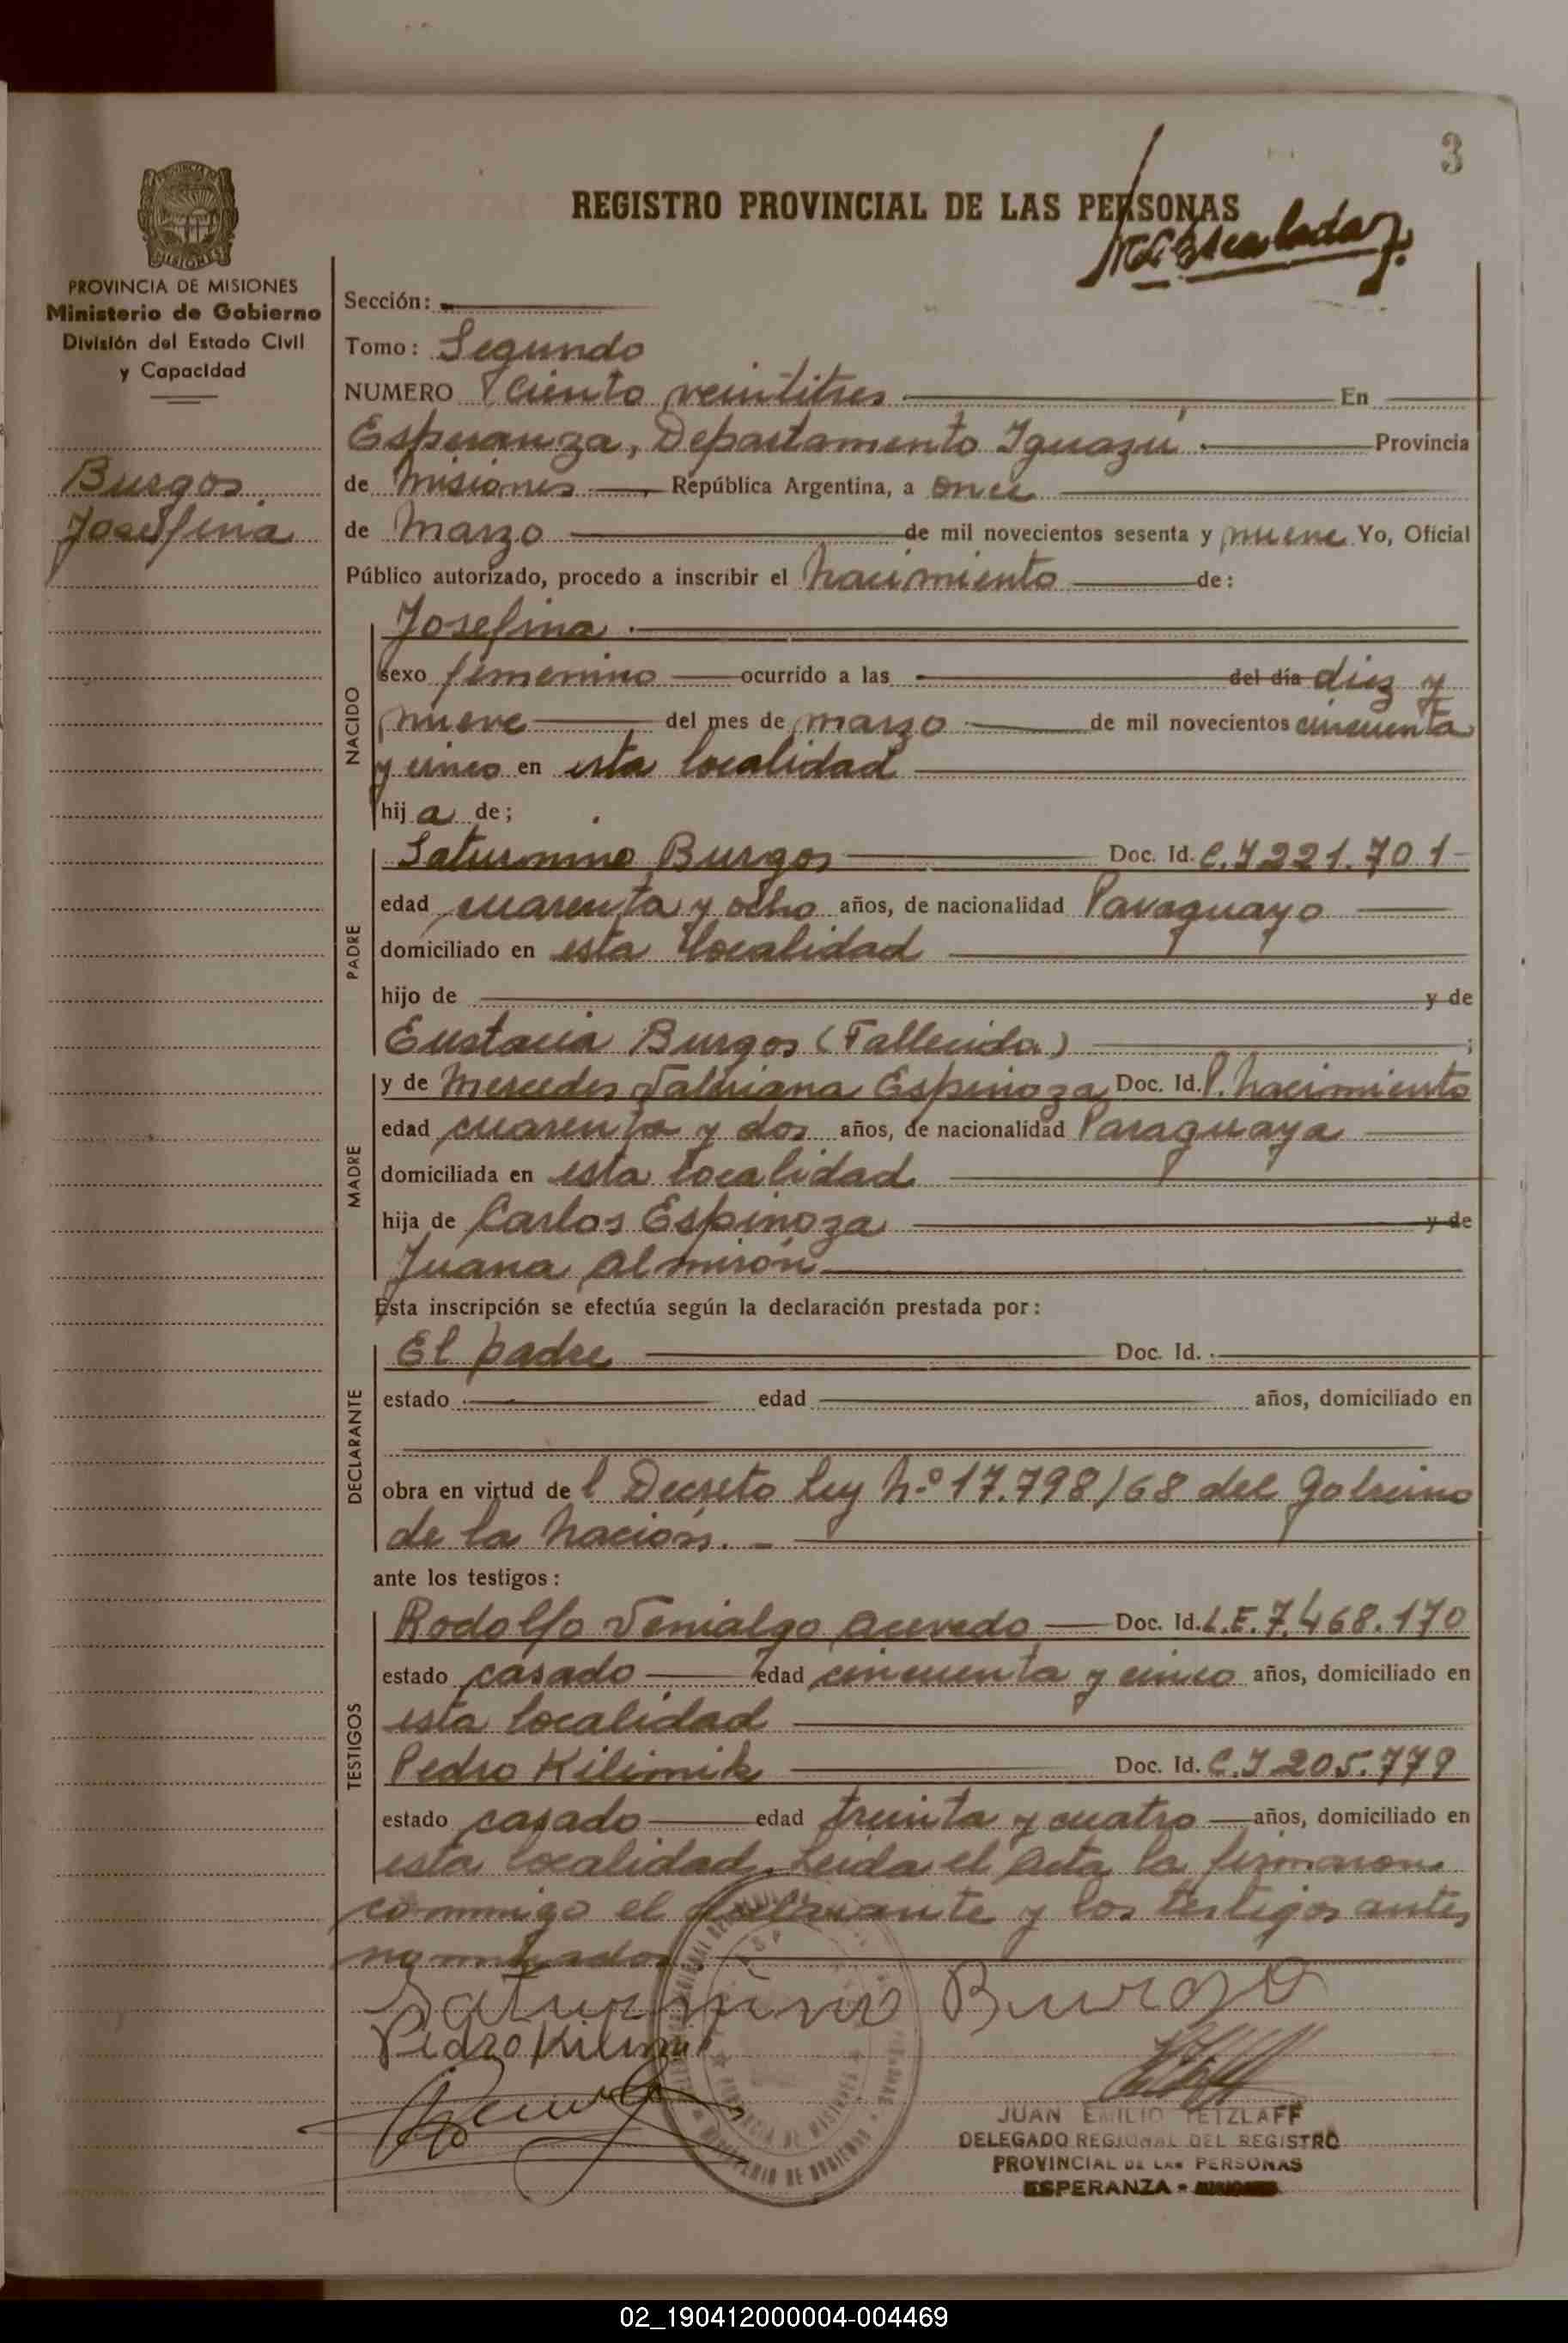 3
REGISTRO PROVINCIAL DE LAS PERSONAS
PROVINCIA DE MISIONES
Ministerio de Gobierno
División del Estado Civil
y Capacidad
Burgos
Josefina
Sección:
Tomo: Segundo
NUMERO Ciento veintitres En
Esperanza, Departamento Iguazú Provincia
de Misiones República Argentina, a once
de Marzo de mil novecientos sesenta y nueve Yo, Oficial
Público autorizado, procedo a inscribir el nacimiento de:
NACIDO
Josefina
sexo femenino ocurrido a las del día diez y
nueve del mes de marzo de mil novecientos cincuenta
y cinco en esta localidad
hija de;
PADRE
Saturnino Burgos Doc. Id. C.I 221.701
edad cuarenta y ocho años, de nacionalidad Paraguayo
domiciliado en esta localidad
hijo de y de
Eustacia Burgos (Fallecida) ;
MADRE
y de Mercedes Valeriana Espinoza Doc. Id. P. nacimiento
edad cuarenta y dos años, de nacionalidad Paraguaya
domiciliada en esta localidad
hija de Carlos Espinoza y de
Juana Almirón
Esta inscripción se efectúa según la declaración prestada por:
DECLARANTE
El padre Doc. Id.
estado edad años, domiciliado en
obra en virtud del Decreto Ley Nº 17.798/68 del Gobierno
de la Nación.
ante los testigos:
TESTIGOS
Rodolfo Venialgo Acevedo Doc. Id. L.E. 7.468.170
estado casado edad cincuenta y cinco años, domiciliado en
esta localidad
Pedro Kilimik Doc. Id. C.I 205.779
estado casado edad treinta y cuatro años, domiciliado en
esta localidad. Leida el Acta la firmaron
conmigo el declarante y los testigos antes
nombrados.
Saturnino Burgo
Pedro Kilimik
JUAN EMILIO TETZLAFF
DELEGADO REGIONAL DEL REGISTRO
PROVINCIAL DE LAS PERSONAS
ESPERANZA -
02_190412000004-004469